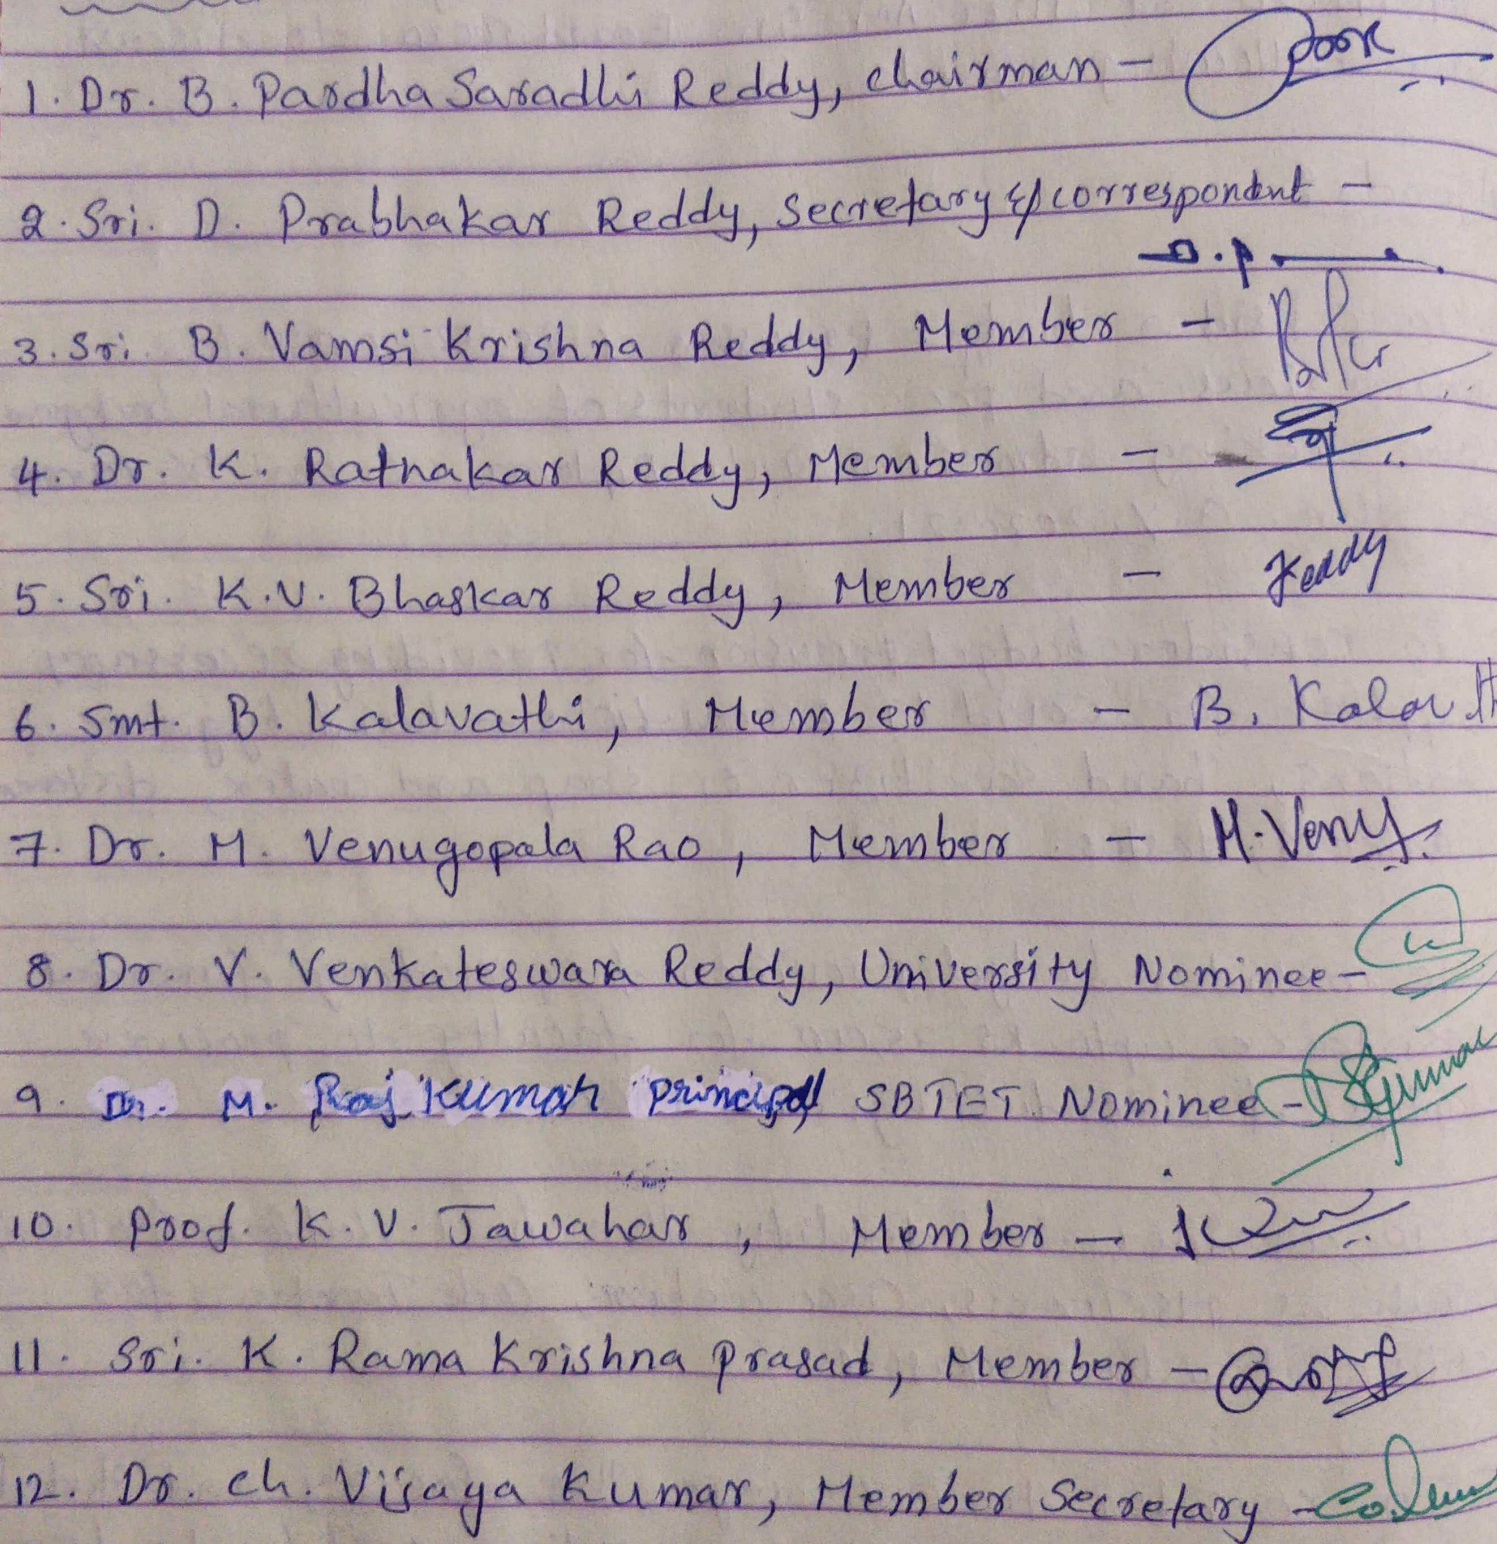 1. Dr. B. Pardha Saradhi Reddy, chairman -
2. Sri. D. Prabhakar Reddy, Secretary & correspondent -
D.P
3. Sri. B. Vamsi Krishna Reddy, Member -
4. Dr. K. Ratnakar Reddy, Member -
5. Sri. K.V. Bhaskar Reddy, Member - Reddy
6. Smt. B. Kalavathi, Member - B. Kalavath
7. Dr. M. Venugopala Rao, Member - M. Venu
8. Dr. V. Venkateswara Reddy, University Nominee -
9. Dr. M. Raj Kumar Principal SBTET Nominee -
10. Prof. K. V. Jawahar, Member -
11. Sri. K. Rama Krishna Prasad, Member -
12. Dr. Ch. Vijaya Kumar, Member Secretary -